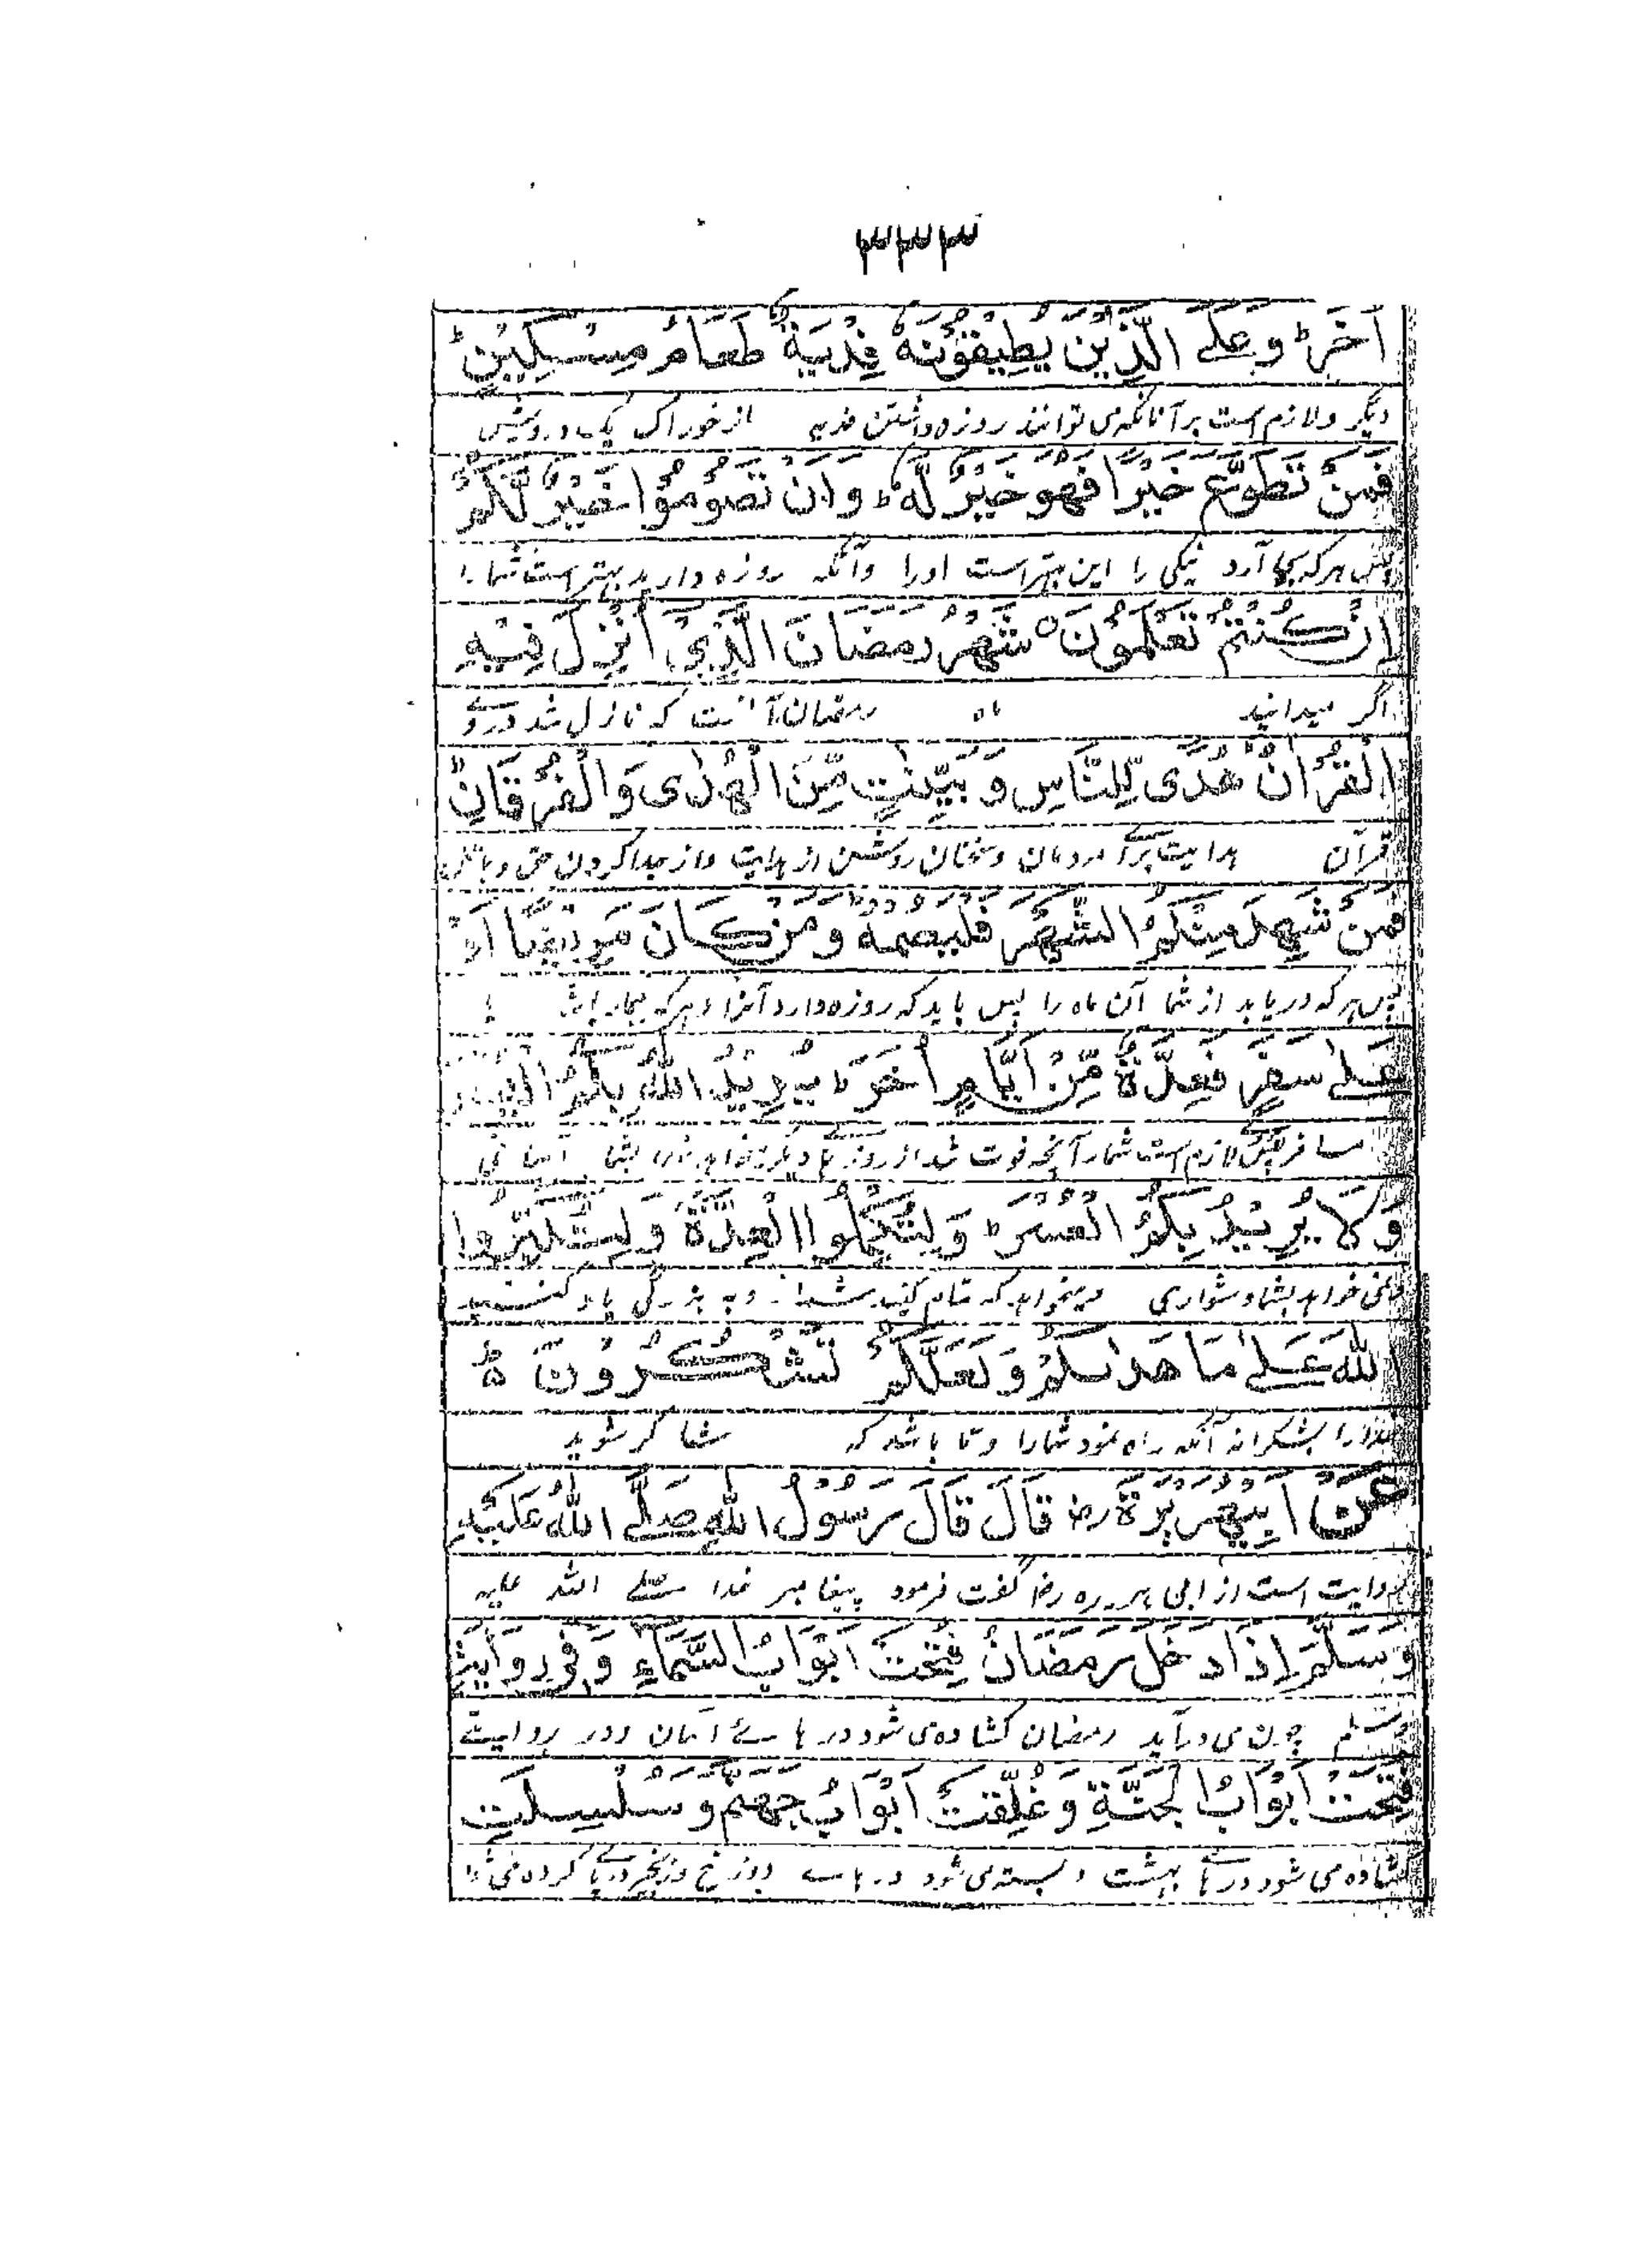 ۳۳۳
اُخَرَ ط وَعَلَى الَّذِيْنَ يُطِيْقُوْنَهٗ فِدْيَةٌ طَعَامُ مِسْكِيْنٍ ط
دیگر ولازم است برآنانکه می توانند روزه داشتن فدیه از خوراک یک درویش
فَمَنْ تَطَوَّعَ خَيْرًا فَهُوَ خَيْرٌ لَّهٗ ط وَاَنْ تَصُوْمُوْا خَيْرٌ لَّكُمْ
پس هرکه بجا آرد نیکی را این بهتر است اورا وآنکه روزه دارید بهتر است شمارا
اِنْ كُنْتُمْ تَعْلَمُوْنَ ۝ شَهْرُ رَمَضَانَ الَّذِيْ اُنْزِلَ فِيْهِ
اگر میدانید ماه رمضان آنست که نازل شد دروے
الْقُرْاٰنُ هُدًى لِّلنَّاسِ وَ بَيِّنٰتٍ مِّنَ الْهُدٰى وَالْفُرْقَانِ
قرآن هدایت برائے مردمان وسخنان روشن از هدایت واز جدا کردن حق و باطل
فَمَنْ شَهِدَ مِنْكُمُ الشَّهْرَ فَلْيَصُمْهُ وَمَنْ كَانَ مَرِيْضًا اَوْ
پس هرکه دریابد از شما آن ماه را پس باید که روزه دارد آنرا و هرکه بیمار باشد یا
عَلٰى سَفَرٍ فَعِدَّةٌ مِّنْ اَيَّامٍ اُخَرَ ط يُرِيْدُ اللّٰهُ بِكُمُ الْيُسْرَ
مسافر پس لازم است شمارا آنچه فوت شد از روزهائے دیگر میخواهد خدا بشما آسانی
وَلَا يُرِيْدُ بِكُمُ الْعُسْرَ ط وَلِتُكْمِلُوا الْعِدَّةَ وَلِتُكَبِّرُوا
ونمی خواهد بشما دشواری ومیخواهد که تمام کنید شمار وبه بزرگی یاد کنید
اللّٰهَ عَلٰى مَا هَدٰىكُمْ وَلَعَلَّكُمْ تَشْكُرُوْنَ ط
خدارا بشکرانه آنکه راه نمود شمارا وتا باشد که شاکر شوید
عَنْ اَبِيْ هُرَيْرَةَ رض قَالَ قَالَ رَسُوْلُ اللّٰهِ صَلَّى اللّٰهُ عَلَيْهِ
روایت است از ابی هریره رض گفت فرمود پیغامبر خدا صلے الله علیه
وَسَلَّمَ اِذَا دَخَلَ رَمَضَانُ فُتِحَتْ اَبْوَابُ السَّمَآءِ وَفِيْ رِوَايَةٍ
وسلم چون می درآید رمضان کشاده می شود درهائے آسمان ودر روایت
فُتِحَتْ اَبْوَابُ الْجَنَّةِ وَغُلِّقَتْ اَبْوَابُ جَهَنَّمَ وَسُلْسِلَتِ
کشاده می شود درهائے بهشت و بسته می شود درهاے دوزخ وزنجیر درپا کرده می شود